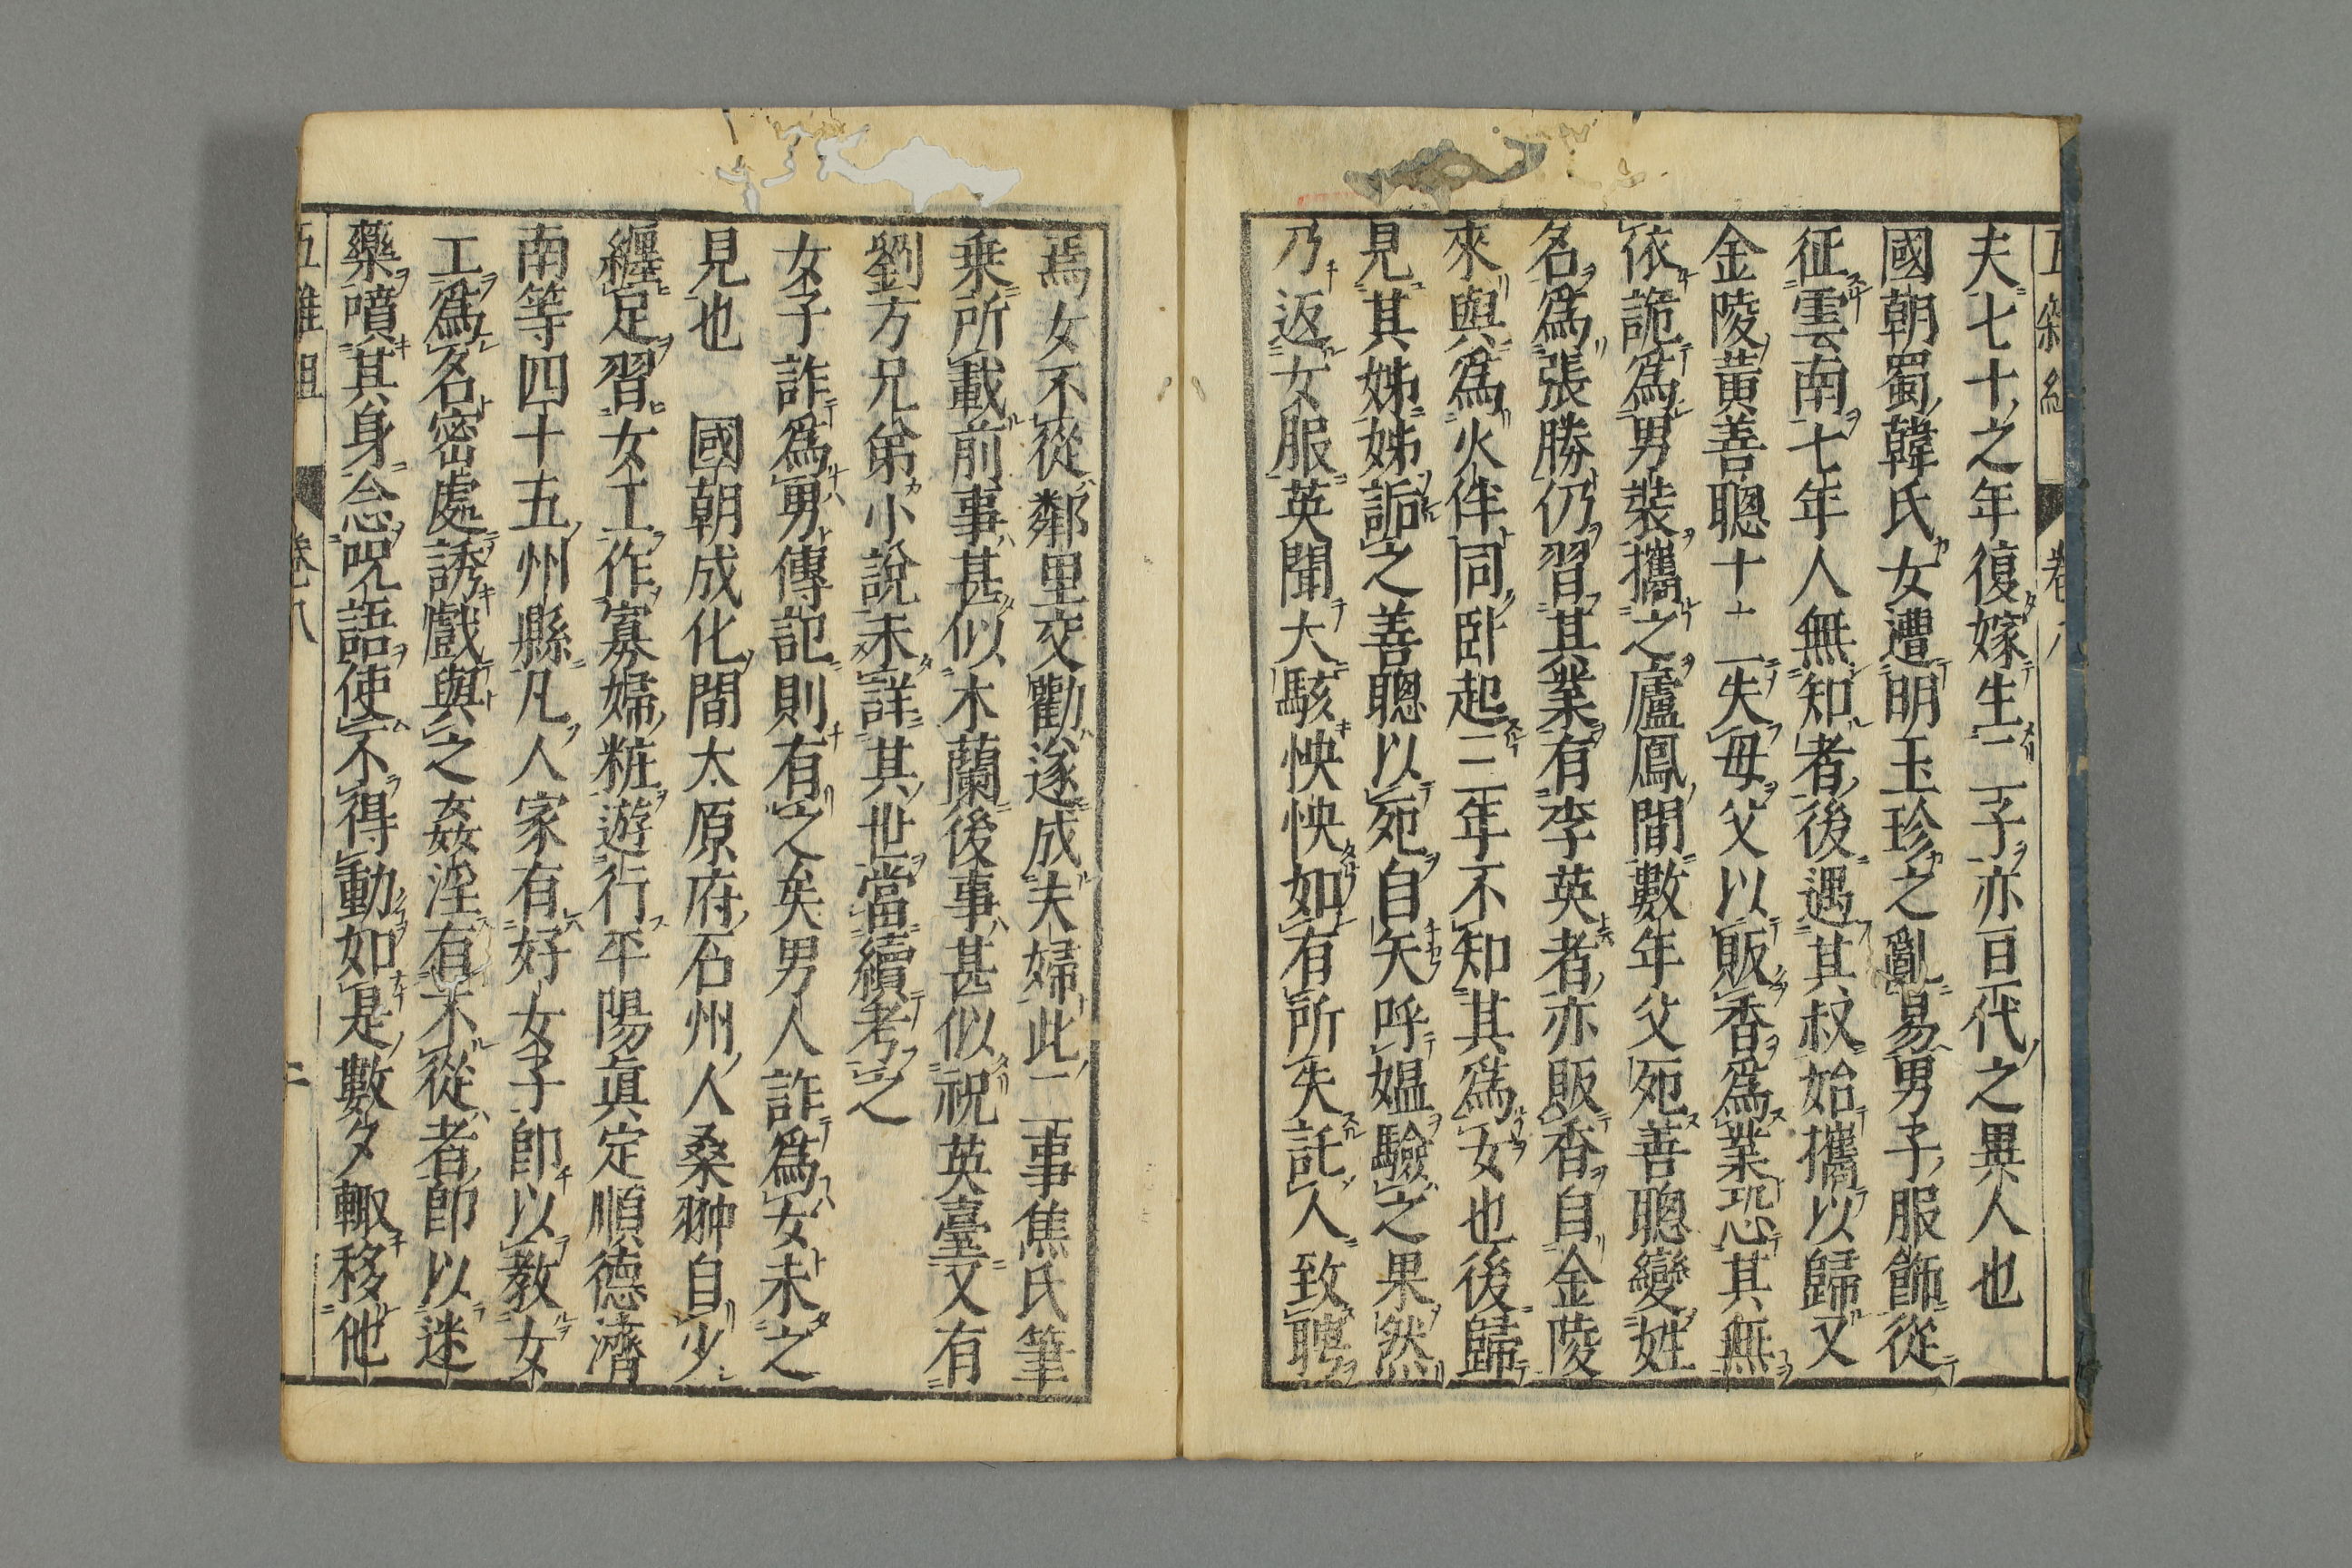 夫七十之年復嫁生二子亦亘代之異人也
國朝蜀韓氏女遭明玉珍之亂易男子服飾從
征雲南七年人無知者後遇其叔始攜以歸又
金陵黃善聰十二失母父以販香爲業恐其無
依詭爲男裝攜之廬鳳間數年父死善聰變姓
名爲張勝仍習其業有李英者亦販香自金陵
來與爲火伴同卧起三年不知其爲女也後歸
見其姊姊詬之善聰以死自矢呼媼驗之果然
乃返女服英聞大駭怏怏如有所失託人致聘
焉女不從鄰里交勸遂成夫婦此二事焦氏筆
乗所載前事甚似木蘭後事甚似祝英臺又有
劉方兄弟小說未詳其世當續考之
女子詐爲男傳記則有之矣男人詐爲女未之
見也　國朝成化間太原府石州人桑翀自少
纏足習女工作寡婦粧遊行平陽眞定順德濟
南等四十五州縣凡人家有好女子卽以教女
工爲名密處誘戲與之姦淫有不從者卽以迷
藥噴其身念呪語使不得動如是數夕輙移他
五雜組　卷八